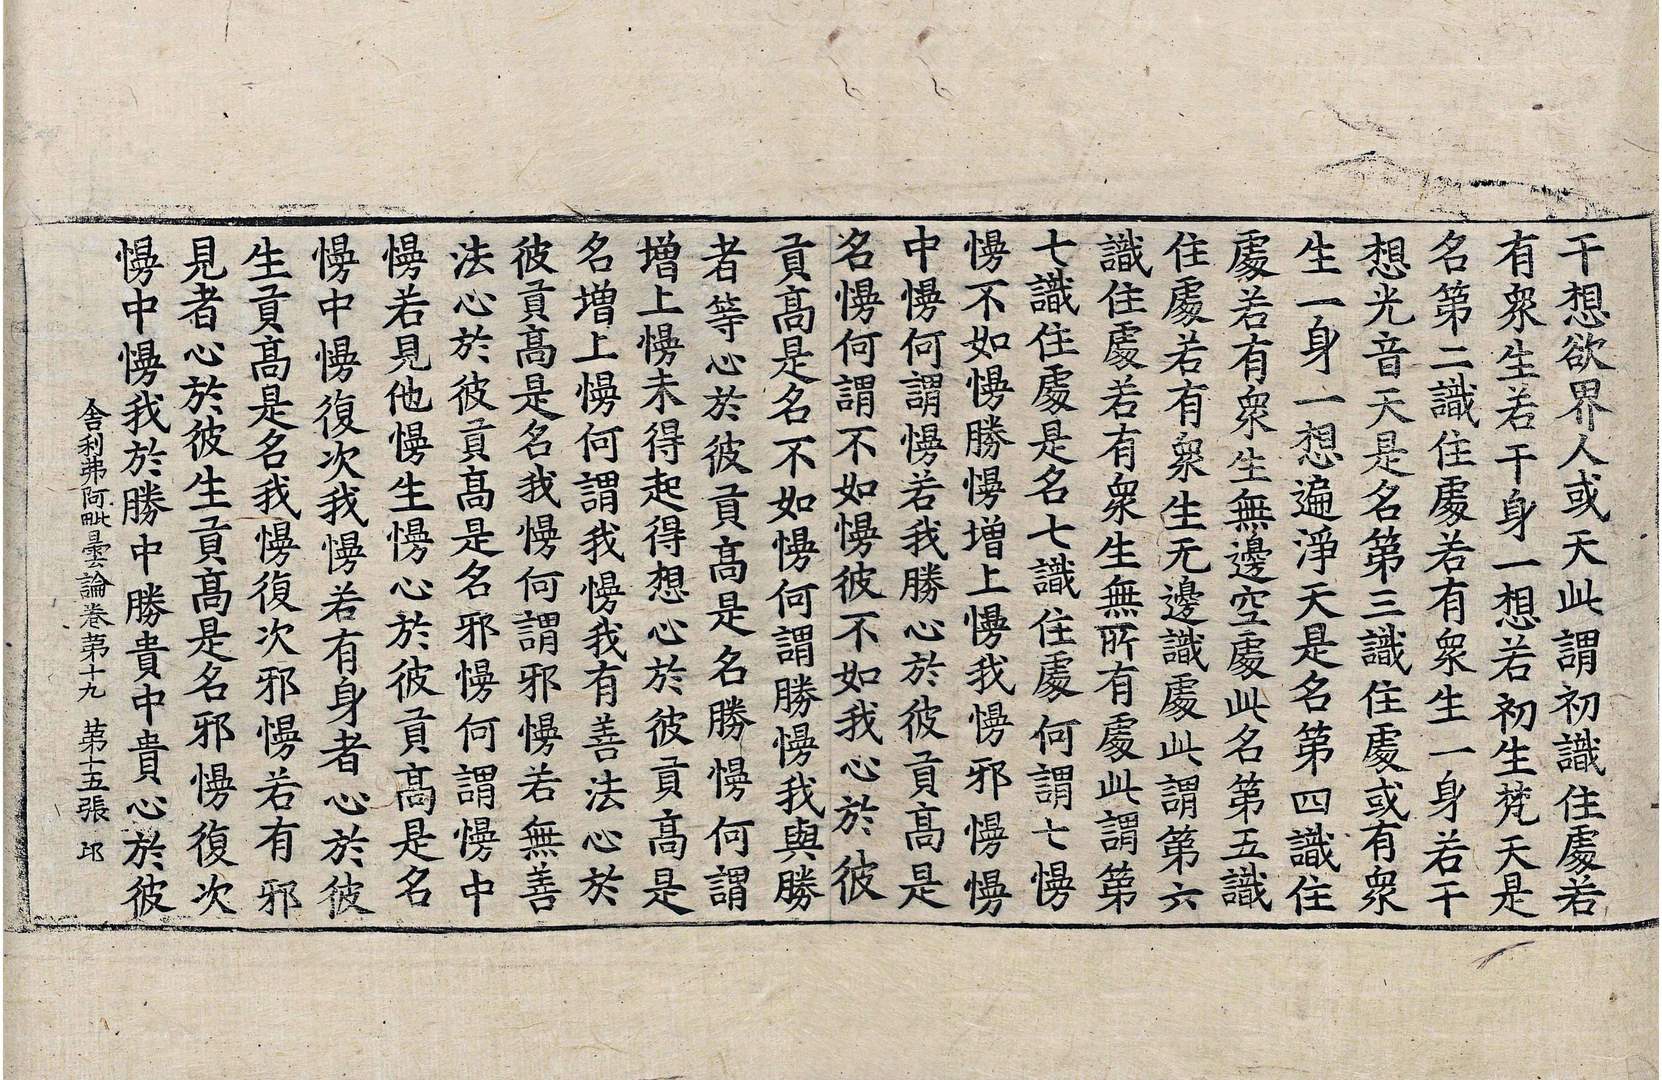 干想欲界人或天此謂初識住處若
有衆生若干身一想若初生梵天是
名第二識住處若有衆生一身若干
想光音天是名第三識住處或有衆
生一身一想遍淨天是名第四識住
處若有衆生無邊空處此名第五識
住處若有衆生无邊識處此謂第六
識住處若有衆生無所有處此謂第
七識住處是名七識住處何謂七慢
慢不如慢勝慢增上慢我慢邪慢慢
中慢何謂慢若我勝心於彼貢高是
名慢何謂不如慢彼不如我心於彼
貢高是名不如慢何謂勝慢我與勝
者等心於彼貢高是名勝慢何謂
增上慢未得起得想心於彼貢高是
名增上慢何謂我慢我有善法心於
彼貢高是名我慢何謂邪慢若無善
法心於彼貢高是名邪慢何謂慢中
慢若見他慢生慢心於彼貢高是名
慢中慢復次我慢若有身者心於彼
生貢高是名我慢復次邪慢若有邪
見者心於彼生貢高是名邪慢復次
慢中慢我於勝中勝貴中貴心於彼
舍利弗阿毗曇論卷第十九 第十五張 邙